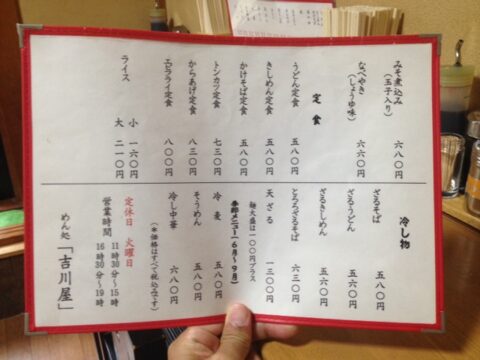 みそ煮込み 六八〇円
(玉子入り)
なべやき 六六〇円
(しょうゆ味)
定食
うどん定食 五八〇円
きしめん定食 五八〇円
かけそば定食 五八〇円
トンカツ定食 七三〇円
からあげ定食 八三〇円
エビフライ定食 八〇〇円
ライス 小 一六〇円
大 二一〇円
冷し物
ざるそば 五八〇円
ざるうどん 五六〇円
ざるきしめん 五六〇円
とろろざるそば 六三〇円
天ざる 一三〇〇円
麺大盛は一〇〇円プラス
季節メニュー(6月~9月)
冷麦 五八〇円
そうめん 五八〇円
冷し中華 六八〇円
(※価格はすべて税込みです)
定休日 火曜日
営業時間 11時30分~15時
16時30分~19時
めん処「吉川屋」